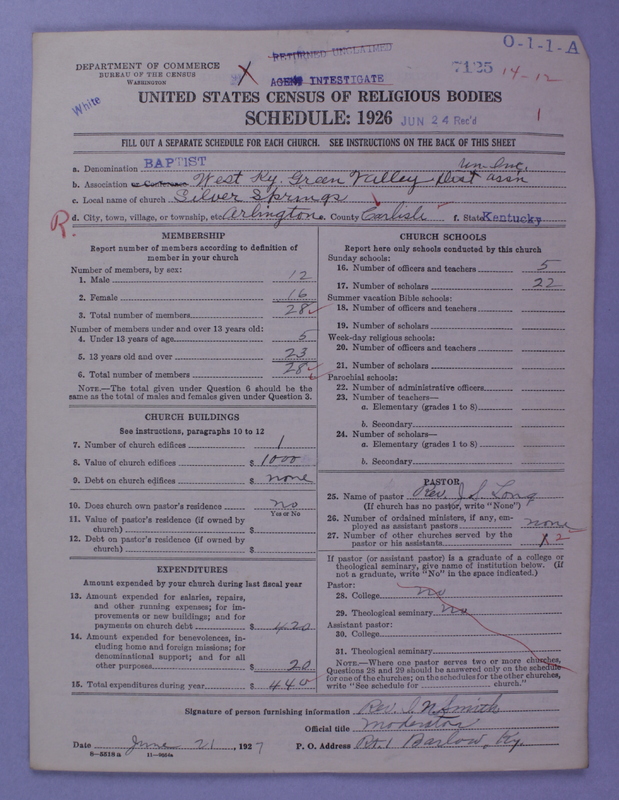 O-1-1-A
RETURNED UNCLAIMED
DEPARTMENT OF COMMERCE
BUREAU OF THE CENSUS
WASHINGTON
X
7125 14-12
White
UNITED STATES CENSUS OF RELIGIOUS BODIES
SCHEDULE: 1926 JUN 24 Rec'd 1
FILL OUT A SEPARATE SCHEDULE FOR EACH CHURCH. SEE INSTRUCTIONS ON THE BACK OF THIS SHEET
a. Denomination BAPTIST Un. Inc.
b. Association or Conference West Ky. Green Valley Dist assn
c. Local name of church Silver Springs
R. d. City, town, village, or township, etc. Arlington e. County Carlisle f. State Kentucky
MEMBERSHIP
Report number of members according to definition of
member in your church
Number of members, by sex:
1. Male 12
2. Female 16
3. Total number of members 28
Number of members under and over 13 years old:
4. Under 13 years of age 5
5. 13 years old and over 23
6. Total number of members 28
NOTE.—The total given under Question 6 should be the
same as the total of males and females given under Question 3.
CHURCH BUILDINGS
See instructions, paragraphs 10 to 12
7. Number of church edifices 1
8. Value of church edifices $ 1000
9. Debt on church edifices $ none
10. Does church own pastor's residence no
Yes or No
11. Value of pastor's residence (if owned by
church) $
12. Debt on pastor's residence (if owned by
church) $
EXPENDITURES
Amount expended by your church during last fiscal year
13. Amount expended for salaries, repairs,
and other running expenses; for im-
provements or new buildings; and for
payments on church debt $ 420
14. Amount expended for benevolences, in-
cluding home and foreign missions; for
denominational support; and for all
other purposes $ 20
15. Total expenditures during year $ 440
CHURCH SCHOOLS
Report here only schools conducted by this church
Sunday schools:
16. Number of officers and teachers 5
17. Number of scholars 22
Summer vacation Bible schools:
18. Number of officers and teachers
19. Number of scholars
Week-day religious schools:
20. Number of officers and teachers
21. Number of scholars
Parochial schools:
22. Number of administrative officers
23. Number of teachers—
a. Elementary (grades 1 to 8)
b. Secondary
24. Number of scholars—
a. Elementary (grades 1 to 8)
b. Secondary
PASTOR
25. Name of pastor Rev. J. S. Long
(If church has no pastor, write "None")
26. Number of ordained ministers, if any, em-
ployed as assistant pastors none
27. Number of other churches served by the
pastor or his assistants 2
If pastor (or assistant pastor) is a graduate of a college or
theological seminary, give name of institution below. (If
not a graduate, write "No" in the space indicated.)
Pastor:
28. College no
29. Theological seminary no
Assistant pastor:
30. College
31. Theological seminary
NOTE.—Where one pastor serves two or more churches,
Questions 28 and 29 should be answered only on the schedule
for one of the churches; on the schedules for the other churches,
write "See schedule for church."
Signature of person furnishing information Rev. J. N. Smith
Official title Moderator
Date June 21, 1927 P. O. Address Rt. 1 Barlow, Ky.
8—5818a 11—9064a